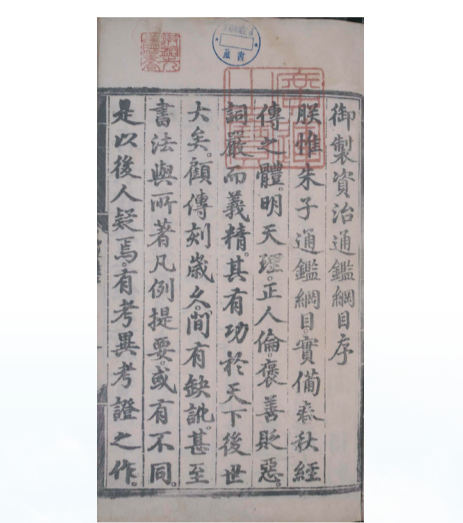 御製資治通鑑綱目序
朕惟朱子通鑑綱目實備春秋經
傳之體。明天理。正人倫。褒善貶惡。
詞嚴而義精。其有功於天下後世
大矣。顧傳刻歲久。間有缺訛。甚至
書法與所著凡例提要。或有不同。
是以後人疑焉。有考異考證之作。